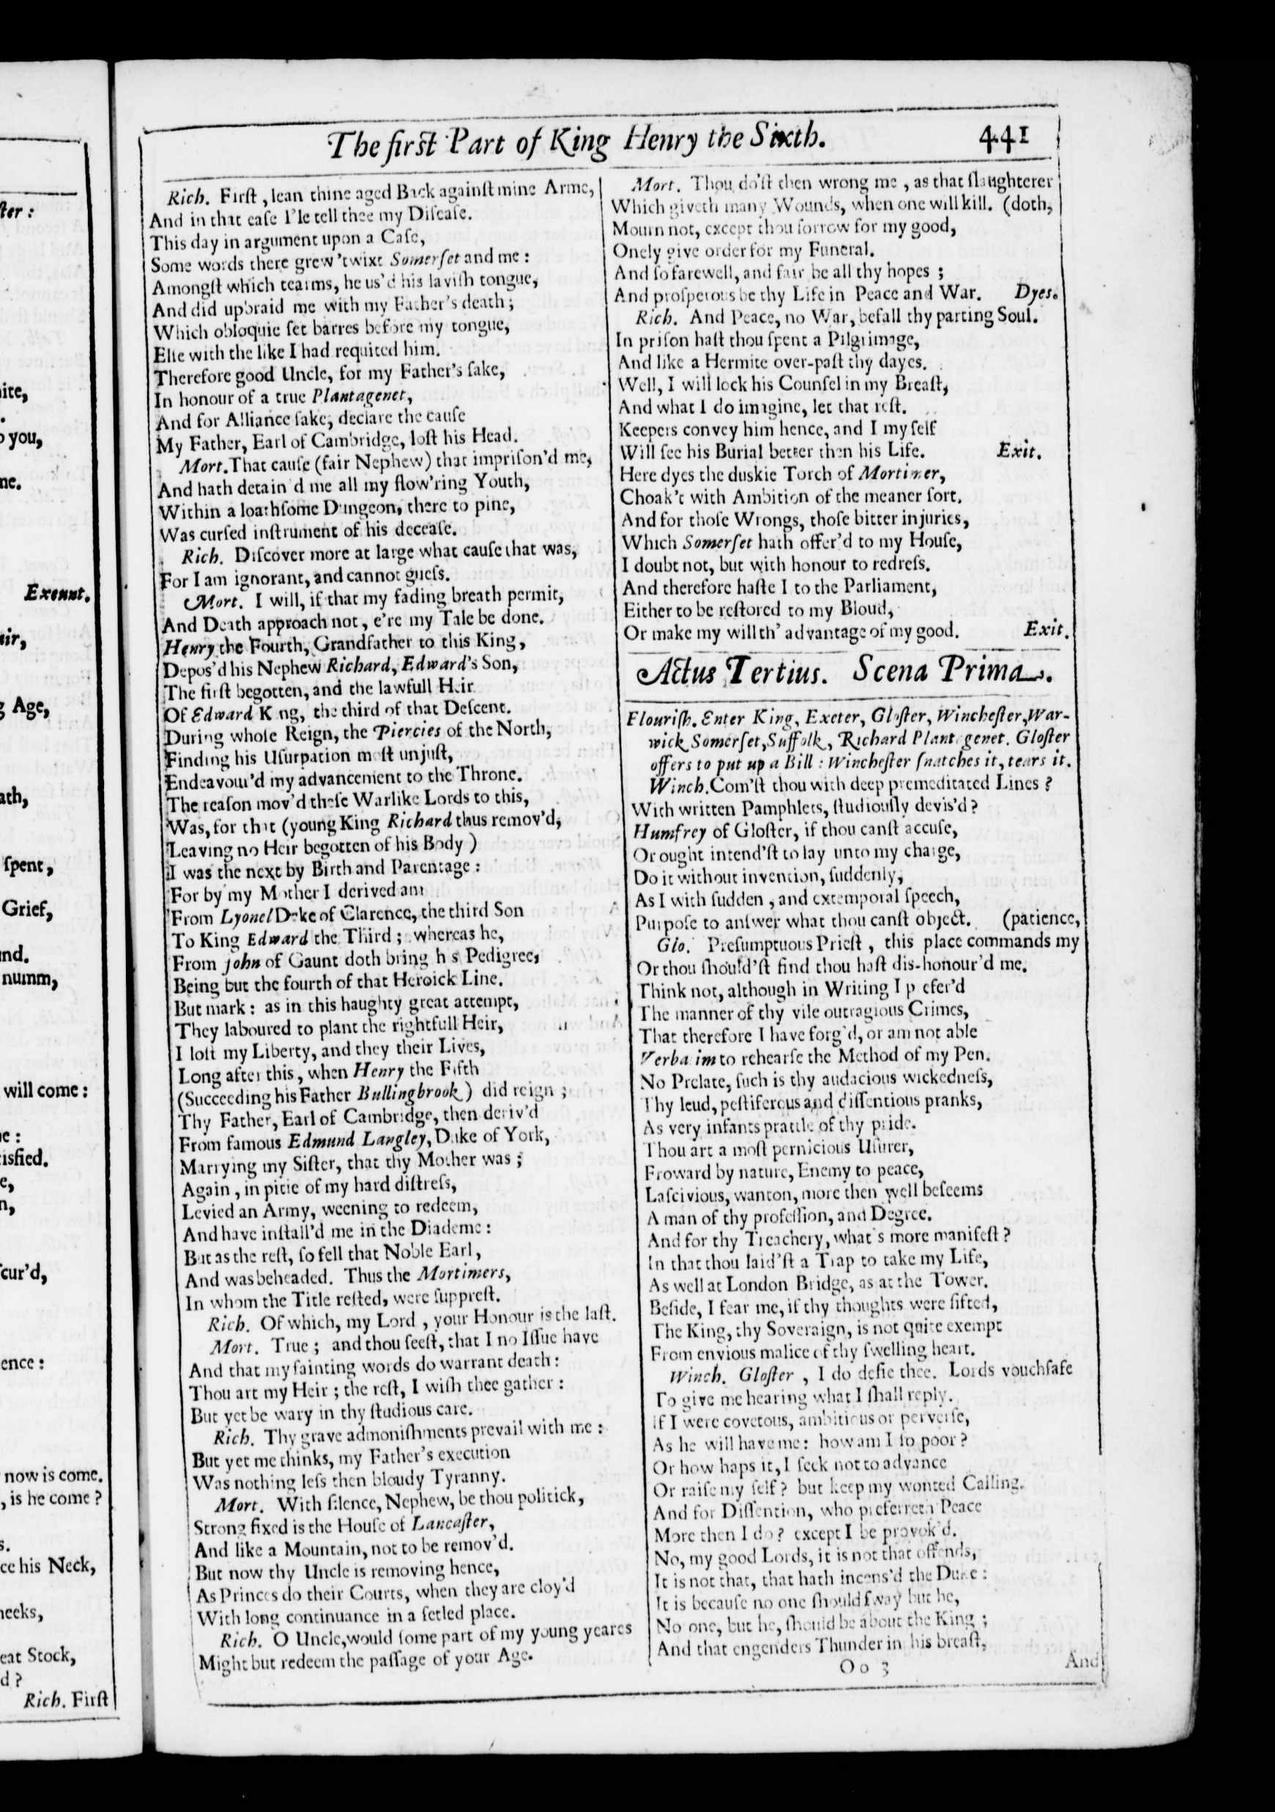 ſter:
ite,
you,
me.
Exeunt.
air,
g Age,
ath,
ſpent,
Grief,
nd.
numm,
will come:
e:
isfied.
e,
n,
cur'd,
ence:
now is come.
, is he come?
s.
ce his Neck,
heeks,
eat Stock,
d?
Rich. Firſt
The firſt Part of King Henry the Sixth. 441
Rich. Firſt, lean thine aged Back againſt mine Arme,
And in that caſe I'le tell thee my Diſeaſe.
This day in argument upon a Caſe,
Some words there grew 'twixt Somerſet and me:
Amongſt which tearms, he us'd his laviſh tongue,
And did upbraid me with my Father's death;
Which obloquie ſet barres before my tongue,
Elſe with the like I had requited him.
Therefore good Uncle, for my Father's ſake,
In honour of a true Plantagenet,
And for Alliance ſake, declare the cauſe
My Father, Earl of Cambridge, loſt his Head.
Mort. That cauſe (fair Nephew) that impriſon'd me,
And hath detain'd me all my flow'ring Youth,
Within a loathſome Dungeon, there to pine,
Was curſed inſtrument of his deceaſe.
Rich. Diſcover more at large what cauſe that was,
For I am ignorant, and cannot gueſs.
Mort. I will, if that my fading breath permit,
And Death approach not, e're my Tale be done.
Henry the Fourth, Grandfather to this King,
Depos'd his Nephew Richard, Edward's Son,
The firſt begotten, and the lawfull Heir
Of Edward K ng, the third of that Deſcent.
During whoſe Reign, the Piercies of the North,
Finding his Uſurpation moſt unjuſt,
Endeavour'd my advancement to the Throne.
The reaſon mov'd theſe Warlike Lords to this,
Was, for that (young King Richard thus remov'd,
Leaving no Heir begotten of his Body)
I was the next by Birth and Parentage:
For by my Mother I derived am
From Lyonel Duke of Clarence, the third Son
To King Edward the Third; whereas he,
From John of Gaunt doth bring h s Pedigree,
Being but the fourth of that Heroick Line.
But mark: as in this haughty great attempt,
They laboured to plant the rightfull Heir,
I loſt my Liberty, and they their Lives,
Long after this, when Henry the Fifth
(Succeeding his Father Bullingbrook) did reign;
Thy Father, Earl of Cambridge, then deriv'd
From famous Edmund Langley, Duke of York,
Marrying my Siſter, that thy Mother was;
Again, in pitie of my hard diſtreſs,
Levied an Army, weening to redeem,
And have inſtall'd me in the Diademe:
But as the reſt, ſo fell that Noble Earl,
And was beheaded. Thus the Mortimers,
In whom the Title reſted, were ſuppreſt.
Rich. Of which, my Lord, your Honour is the laſt.
Mort. True; and thou ſeeſt, that I no Iſſue have
And that my fainting words do warrant death:
Thou art my Heir; the reſt, I wiſh thee gather:
But yet be wary in thy ſtudious care.
Rich. Thy grave admoniſhments prevail with me:
But yet me thinks, my Father's execution
Was nothing leſs then bloudy Tyranny.
Mort. With ſilence, Nephew, be thou politick,
Strong fixed is the Houſe of Lancaſter,
And like a Mountain, not to be remov'd.
But now thy Uncle is removing hence,
As Princes do their Courts, when they are cloy'd
With long continuance in a ſetled place.
Rich. O Uncle, would ſome part of my young yeares
Might but redeem the paſſage of your Age.
Mort. Thou do'ſt then wrong me, as that ſlaughterer
Which giveth many Wounds, when one will kill. (doth,
Mourn not, except thou ſorrow for my good,
Onely give order for my Funeral.
And ſo farewell, and fair be all thy hopes;
And proſperous be thy Life in Peace and War. Dyes.
Rich. And Peace, no War, befall thy parting Soul.
In priſon haſt thou ſpent a Pilgrimage,
And like a Hermite over-paſt thy dayes.
Well, I will lock his Counſel in my Breaſt,
And what I do imagine, let that reſt.
Keepers convey him hence, and I my ſelf
Will ſee his Burial better then his Life. Exit.
Here dyes the duskie Torch of Mortimer,
Choak't with Ambition of the meaner ſort.
And for thoſe Wrongs, thoſe bitter injuries,
Which Somerſet hath offer'd to my Houſe,
I doubt not, but with honour to redreſs.
And therefore haſte I to the Parliament,
Either to be reſtored to my Bloud,
Or make my will th' advantage of my good. Exit.
Actus Tertius. Scena Prima.
Flouriſh. Enter King, Exeter, Gloſter, Wincheſter, War-
wick, Somerſet, Suffolk, Richard Plantagenet. Gloſter
offers to put up a Bill: Wincheſter ſnatches it, tears it.
Winch. Com'ſt thou with deep premeditated Lines?
With written Pamphlets, ſtudiouſly devis'd?
Humfrey of Gloſter, if thou canſt accuſe,
Or ought intend'ſt to lay unto my charge,
Do it without invention, ſuddenly,
As I with ſudden, and extemporal ſpeech,
Purpoſe to anſwer what thou canſt object. (patience,
Glo. Preſumptuous Prieſt, this place commands my
Or thou ſhould'ſt find thou haſt dis-honour'd me.
Think not, although in Writing I p efer'd
The manner of thy vile outragious Crimes,
That therefore I have forg'd, or am not able
Verba im to rehearſe the Method of my Pen.
No Prelate, ſuch is thy audacious wickedneſs,
Thy leud, peſtiferous and diſſentious pranks,
As very infants prattle of thy pride.
Thou art a moſt pernicious Uſurer,
Froward by nature, Enemy to peace,
Laſcivious, wanton, more then well beſeems
A man of thy profeſſion, and Degree.
And for thy Treachery, what's more manifeſt?
In that thou laid'ſt a Trap to take my Life,
As well at London Bridge, as at the Tower.
Beſide, I fear me, if thy thoughts were ſifted,
The King, thy Soveraign, is not quite exempt
From envious malice of thy ſwelling heart.
Winch. Gloſter, I do defie thee. Lords vouchſafe
To give me hearing what I ſhall reply.
If I were covetous, ambitious or perverſe,
As he will have me: how am I ſo poor?
Or how haps it, I ſeek not to advance
Or raiſe my ſelf? but keep my wonted Calling.
And for Diſſention, who preferreth Peace
More then I do? except I be provok'd.
No, my good Lords, it is not that offends,
It is not that, that hath incens'd the Duke:
It is becauſe no one ſhould ſway but he,
No one, but he, ſhould be about the King;
And that engenders Thunder in his breaſt,
Oo 3 And